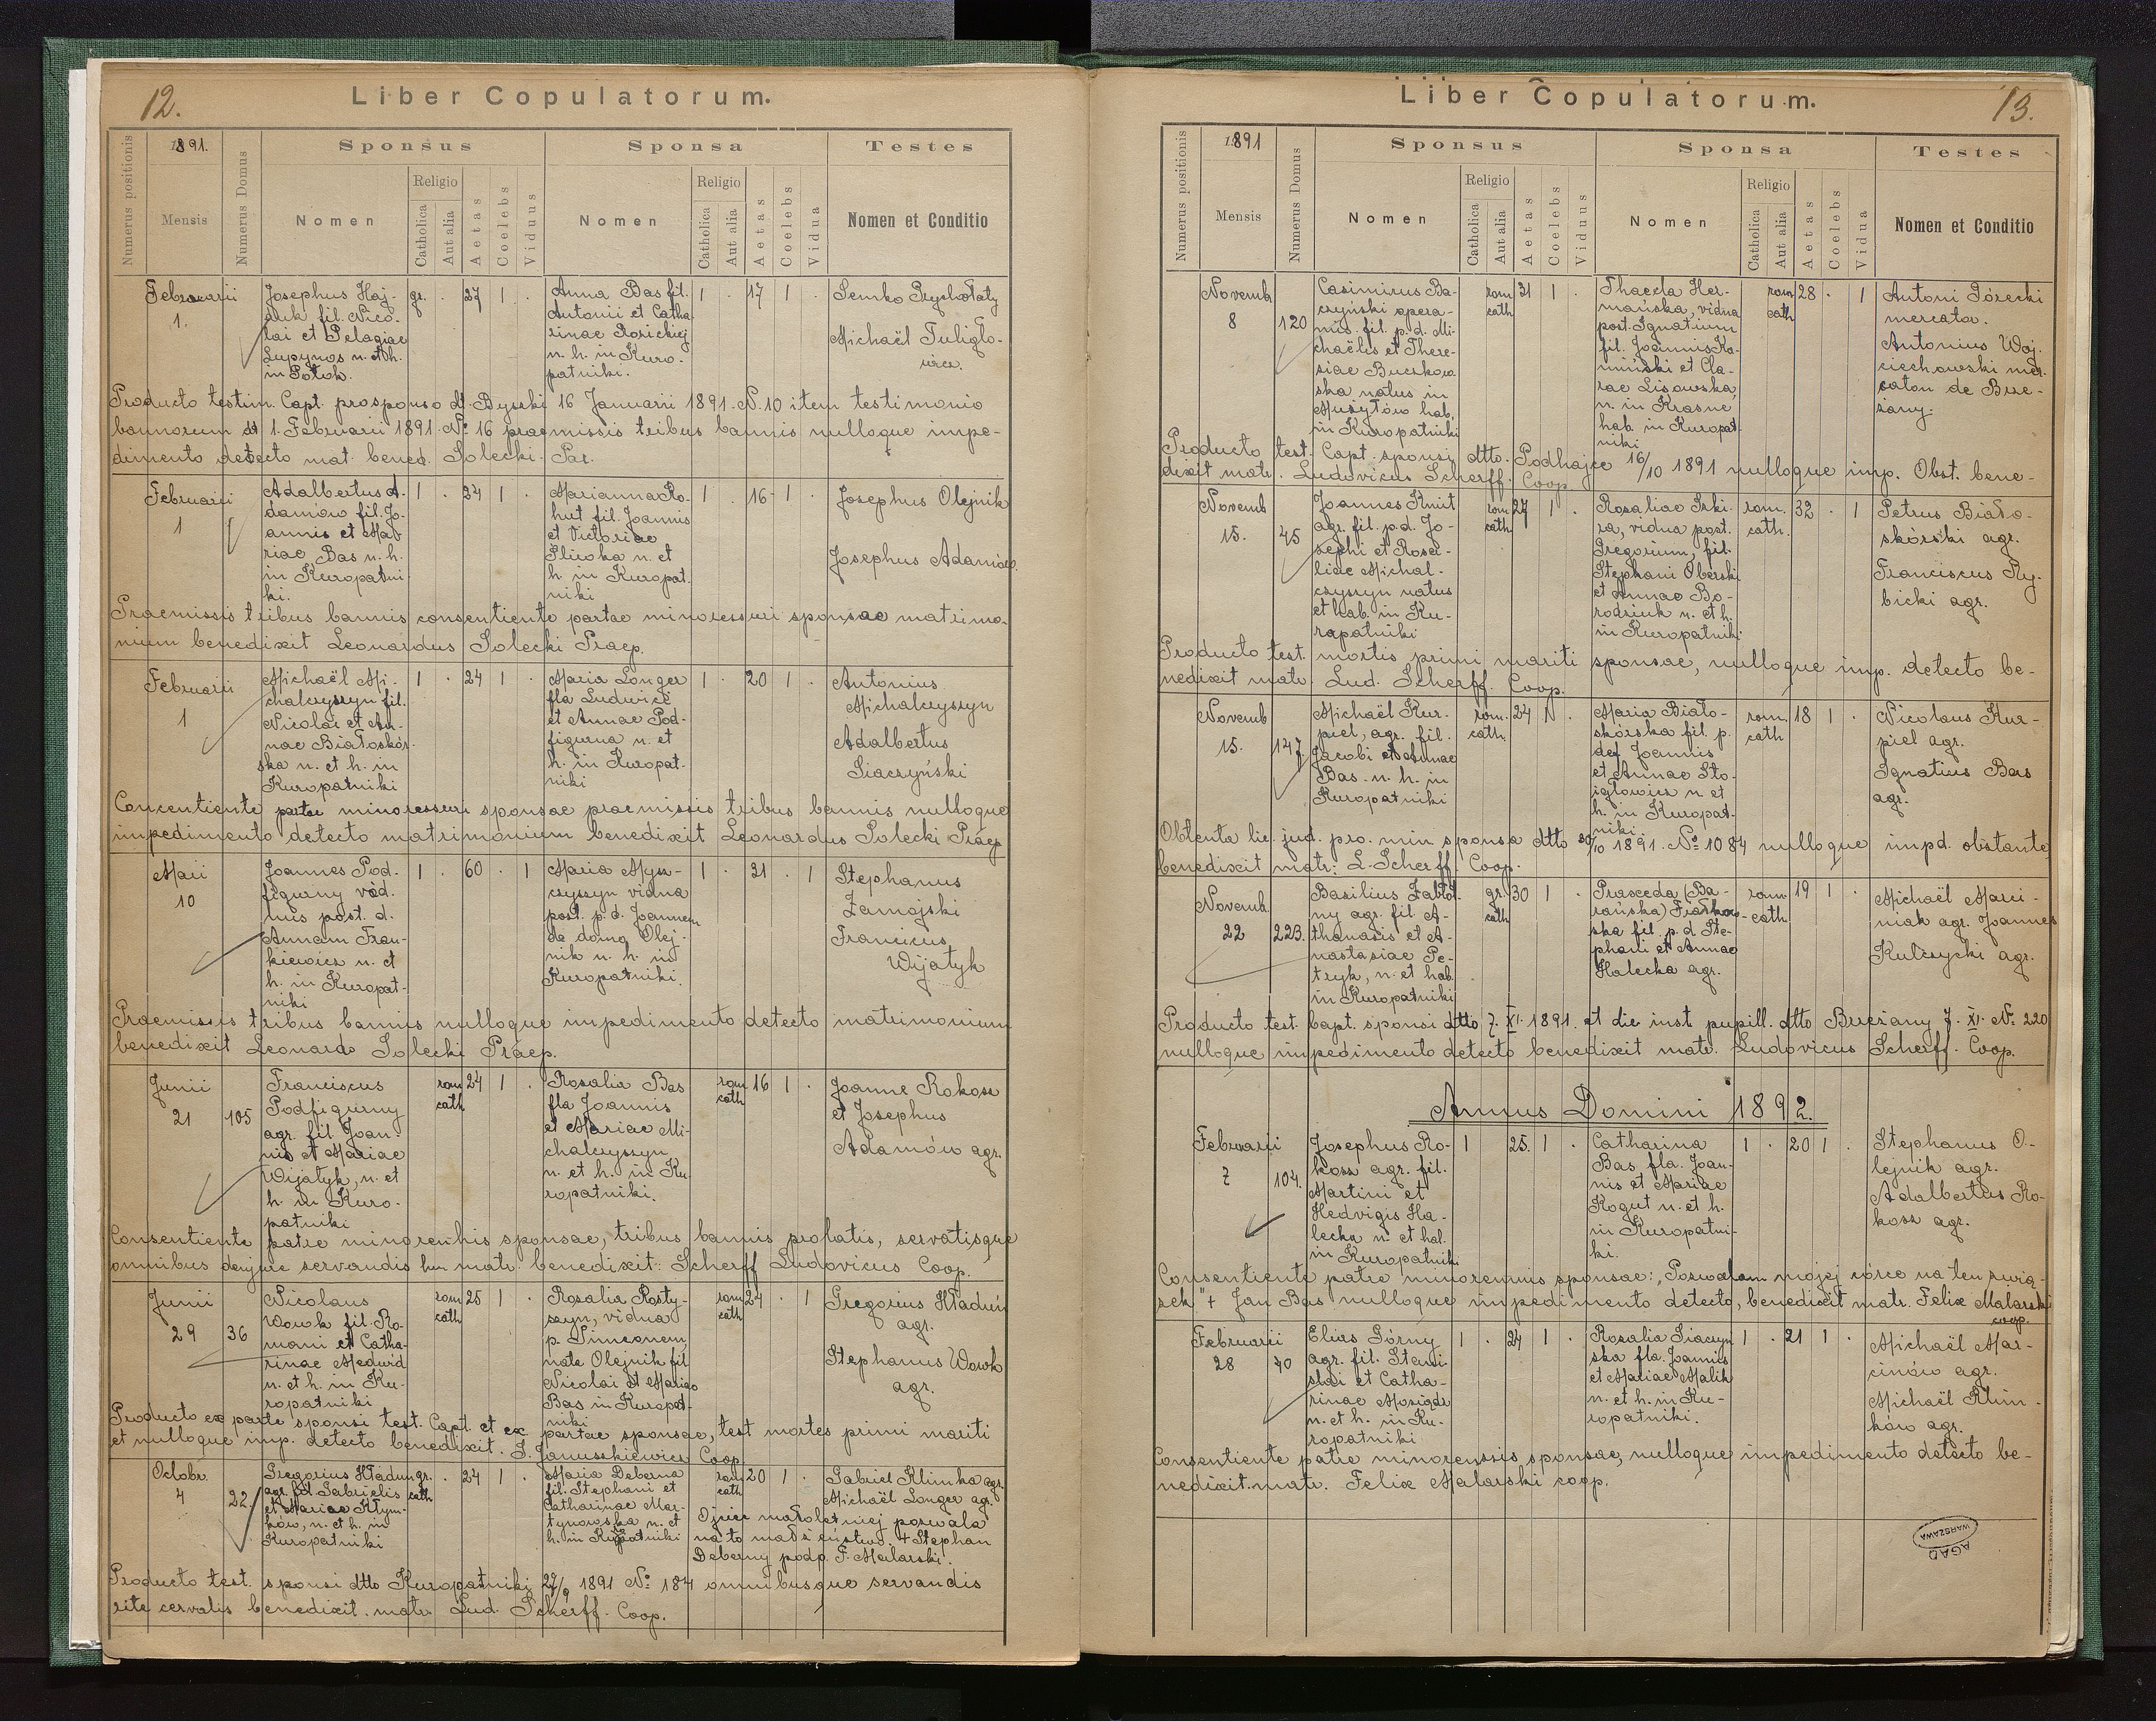 12.
Liber Copulatorum.
Numerus positionis
1891.
Mensis
Numerus Domus
Sponsus
Nomen
Religio
Catholica
Aut alia
Aetas
Coelebs
Viduus
Sponsa
Nomen
Religio
Catholica
Aut alia
Aetas
Coelebs
Vidua
Testes
Nomen et Conditio
Februarii
1.
Josephus Haj-
duk fil. Nico-
lai et Pelagiae
Lupynos n. et h.
in Potok.
gr. . 27 1 .
Anna Bas fil.
Antonii et Catha
rinae Rozickiej
n. h. in Kuro-
patniki.
1 . 17 1 .
Semko Przyshlaty
Michaël Tuligło-
wicz.
Producto testim. Capt. pro sponso dt. Byszki 16 Januarii 1891. N. 10 item testimonio
bannorum dt 1. Februarii 1891 No 16 praemissis tribus bannis nulloque impe-
dimento detecto mat. bened. Solecki. Par.
Februarii
1
Adalbertus A-
damów fil. Jo-
annis et Mab
riae Bas n. h.
in Kuropatni
ki.
1 . 34 1 .
Marianna Ro-
hut fil. Joannis
et Victoriae
Sliwka n. et
h. in Kuropat-
niki
1 . 16 1 .
Josephus Olejnik
Josephus Adamów.
Praemissis tribus bannis consentiente partae minoressuri sponsae matrimo-
nium benedixit Leonardus Solecki Praep.
Februarii
1
Michaël Mi-
chalczyszyn fil.
Nicolai et An-
nae Białoskór-
ska n. et h. in
Kuropatniki
1 . 24 1 .
Maria Longer
fla Ludwice
et Annae Pod-
figurna n. et
h. in Kuropat-
niki
1 . 20 1 .
Antonius
Michalczyszyn
Adalbertus
Siaczyński
Concentiente partae minoressuri sponsae praemissis tribus bannis nulloque
impedimento detecto matrimonium benedixit Leonardus Solecki Praep
Maii
10
Joannes Pod-
figurny vid.
nus post. d.
Annam Fran-
kiewicz n. et
h. in Kuropat-
niki
1 . 60 . 1
Maria Mysz-
czyszyn vidna
post. p. d. Joannem
de domo Olej-
nik n. h. in
Kuropatniki.
1 . 31 . 1
Stephanus
Zamojski
Francicus
Wijatyk
Praemissis tribus bannis nulloque impedimento detecto matrimonium
benedixit Leonardo Solecki Praep.
Junii
21
105
Franciscus
Podfigurny
agr. fil. Joan-
nis et Mariae
Wijatyk, n. et
h. in Kuro-
patniki
rom
cath 24 1 .
Rosalia Bas
fla Joannis
et Mariae Mi-
chalczyszyn
n. et h. in Ku
ropatniki.
rom
cath 16 1 .
Joanne Rokosz
et Josephus
Adamów agr.
Consentiente patre minorenhis sponsae, tribus bannis probatis, servatisque
omnibus dejure servandis hm matr. benedixit: Scherff Ludovicus Coop.
Junii
29
36
Nicolaus
Wowk fil. Ro-
mani et Catha-
rinae Medwid
n. et h. in Ku-
ropatniki
rom
cath 25 1 .
Rosalia Rosty-
szyn, vidna
p. Simeonem,
nate Olejnik fil
Nicolai et Mariae
Bas in Kuropat-
niki
rom
cath 24 . 1
Gregorius Hładun
agr.
Stephanus Wowk
agr.
Producto ex parte sponsi test. Capt. et ex partae sponsae, test mortes primi mariti
et nulloque imp. detecto benedixit. J. Januszkiewicz Coop
Octobr.
4
22
Gregorius Hładun
agr. fil Gabrielis
et Mariae Klym-
ków, n. et h. in
Kuropatniki
gr.
cath . 24 1 .
Maria Deberna
fil. Stephani et
Catharinae Mar-
tynowska n. et
h. in Kuropatniki
rom
cath 20 1 .
Gabriel Klimka agr.
Michaël Longer agr.
Ojciec małoletniej pozwala
na to małżeństwo. + Stephan
Deberny podp. F. Malarski.
Producto test. sponsi dtto Kuropatniki 27/9 1891 No 184 omnibusque servandis
rite cervatis benedixit. matr. Lud. Scherff. Coop.
Liber Copulatorum.
13.
Numerus positionis
1891
Mensis
Numerus Domus
Sponsus
Nomen
Religio
Catholica
Aut alia
Aetas
Coelebs
Viduus
Sponsa
Nomen
Religio
Catholica
Aut alia
Aetas
Coelebs
Vidua
Testes
Nomen et Conditio
Novemb
8
120
Casimirus Ba-
czyński opera-
nis. fil. p. d. Mi-
chaëlis et There-
siae Buczkow
ska natus in
Mużyłów hab.
in Kuropatniki
rom
cath 31 1 .
Thaecla Her-
mańska, vidna
post. Ignatium
fil. Joannis Ka-
miński et Cla-
rae Lisowska,
n. in Krasne
hab. in Kuropat-
niki
rom
cath 28 . 1
Antoni Górecki
mercator.
Antonius Woj-
ciechowski mer-
caton de Brze-
żany.
Producto test. Capt. sponsi dtto. Podhajce 16/10 1891 nulloque imp. Obst. bene-
dixit matr. Ludovicus Scherff. Coop
Novemb
15.
45
Joannes Kmit
agr. fil. p. d. Jo-
sephi et Rosa-
liae Michal-
czyszyn natus
et hab. in Ku-
ropatniki
rom
cath 27 1 .
Rosaliae Iski-
ra, vidua post.
Gregorium, fil.
Stephani Oberski
et Annae Bo-
rodziuk n. et h.
in Kuropatniki
rom.
cath. 32 . 1
Petrus Biało-
skórski agr.
Franciscus Ry-
bicki agr.
Producto test. mortis primi mariti sponsae, nulloque imp. detecto be-
nedixit matr. Lud. Scherff. Coop.
Novemb
15.
147.
Michaël Kur-
piel, agr. fil.
Jacobi et Annae
Bas. n. h. in
Kuropatniki
rom.
cath. 24 N .
Maria Biało-
skórska fil. p.
def Joannis
et Annae Sto-
igłowicz n. et
h. in Kuropat-
niki.
rom.
cath 18 1 .
Nicolaus Kur-
piel agr.
Ignatius Bas
agr.
Obtenta lic. jud. pro. min sponsa dtto 30/10 1891. No 1084 nulloque impd. obstante
benedixit matr: L. Scherff. Coop.
Novemb.
22
223.
Basilius Zabłot-
ny agr. fil. A-
thanasis et A-
nastasiae Pe-
tryk, n. et hab.
in Kuropatniki
gr.
cath 30 1 .
Praxceda (Ba-
rańska) Fiałkow-
ska fil. p. d. Ste-
phani et Annae
Halecka agr.
rom
cath 19 1 .
Michaël Marci-
niak agr. Joannes
Kulczycki agr.
Producto test. bapt. sponsi dtto 7. XI. 1891. et die inst. pupill. dtto Brzeżany 7. XI. No 220
nulloque impedimento detecto benedixit matr. Ludovicus Scherff. Coop.
Annus Domini 1892.
Februarii
7
104.
Josephus Ro-
kosz agr. fil.
Martini et
Hedvigis Ha-
lecka n. et hal.
in Kuropatniki
1 25. 1 .
Catharina
Bas fla. Joan-
nis et Mariae
Kogut n. et h.
in Kuropatni-
ki.
1 . 20 1 .
Stephanus O-
lejnik agr.
Adalbertus Ro-
kosz agr.
Consentiente patre minorennis sponsae: „Pozwalam mojej córce na ten zwią-
zek" + Jan Bas nulloque impedimento detecto, benedixit matr. Felix Malarski
coop.
Februarii
28
70
Elias Górny
agr. fil. Stani-
slai et Catha-
rinae Mosiądz
n. et h. in Ku-
ropatniki
1 . 24 1 .
Rosalia Siaczyn
ska fla. Joannis
et Mariae Malik
n. et h. in Ku-
ropatniki.
1 . 21 1 .
Michaël Mar-
cinów agr.
Michaël Klim-
ków agr.
Consentiente patre minorenssis sponsae, nulloque impedimento detecto be-
nedixit. matr. Felix Malarski coop.
AGAD
WARSZAWA